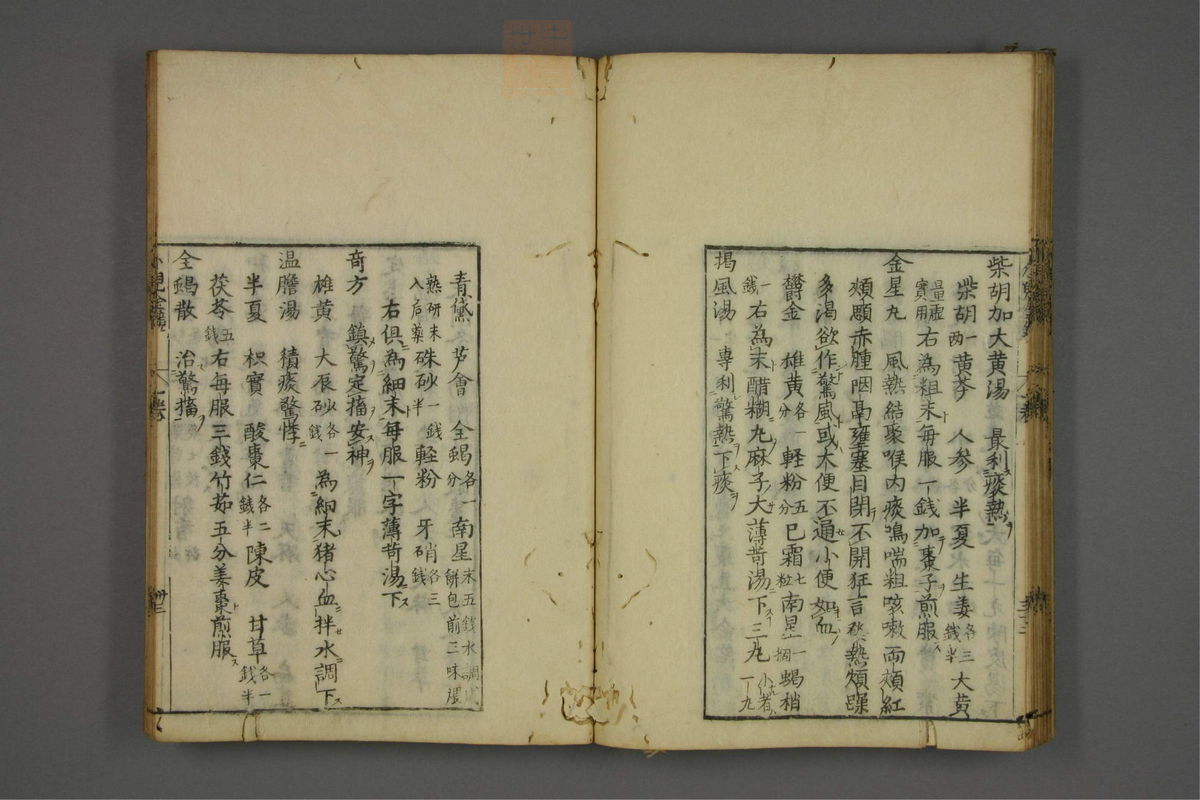 柴胡加大黄湯　最利痰熱
柴胡一两黄芩　人参　半夏　生姜各三錢半大黄
量虚實用右為粗末毎服一錢加棗子煎服
金星丸　風熱結聚喉内痰鳴喘粗咳嗽両頰紅
頰腮赤腫咽膈壅塞目閉不開狂言發熱煩躁
多渴欲作驚風或大便不通小便如血
欝金　雄黄各一分軽粉五分巴霜七粒南星一个蝎梢
一錢右為末醋糊丸麻子大薄荷湯下三丸小者一丸
揭風湯　專利驚熱下痰
青黛　芦會　全蝎各一分南星末五錢水調成餅包前二味煨
熟研末入后薬硃砂一錢半軽粉　牙硝各三錢
右俱為細末毎服一字薄荷湯下
奇方　鎮驚定搐安神
雄黄　大辰砂各一錢為細末猪心血拌水調下
温膽湯　積痰驚悸
半夏　枳實　酸棗仁各二錢半陳皮　甘草各一錢半
茯苓五錢右毎服三錢竹茹五分姜棗煎服
全蝎散　治驚搐